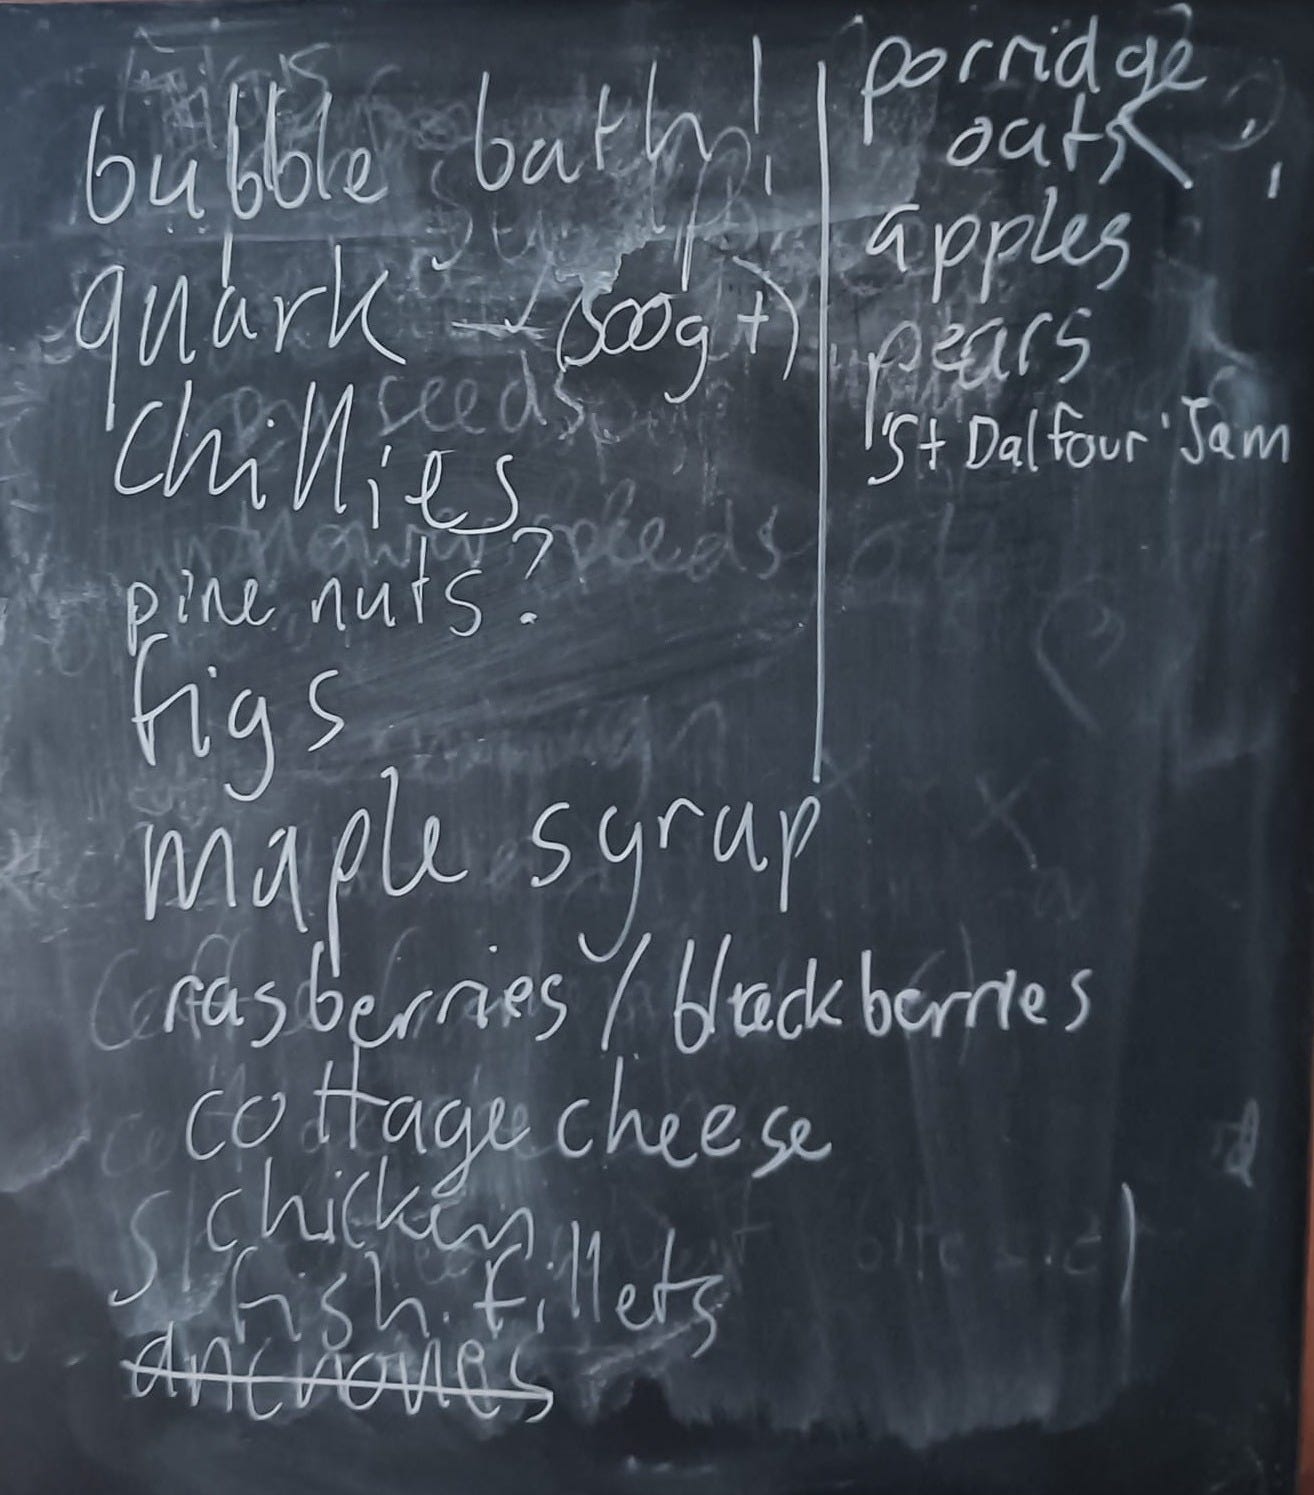 bubble bath!
quark → (500g +)
chillies
pine nuts?
figs
maple syrup
rasberries / blackberries
cottage cheese
chicken
fish fillets
anchovies
porridge
oats
apples
pears
'St Dalfour' Jam
seeds